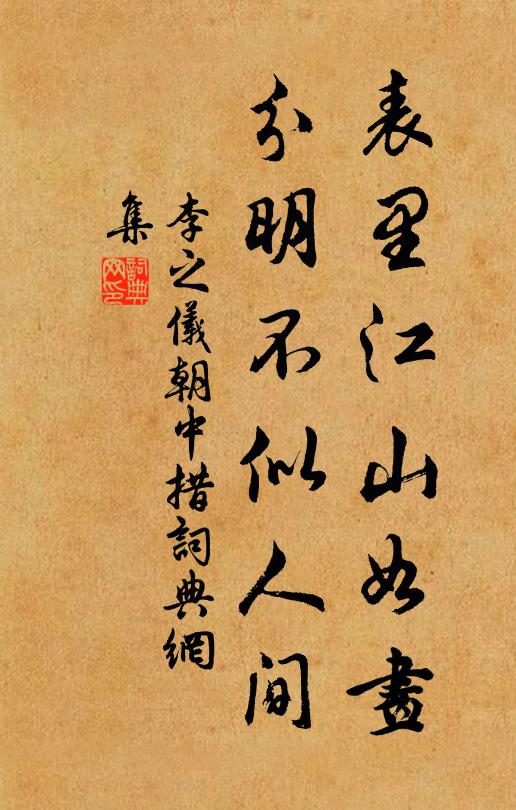 表里江山如畫
分明不似人间
李之儀朝中措詞典網
集
詞典
网印